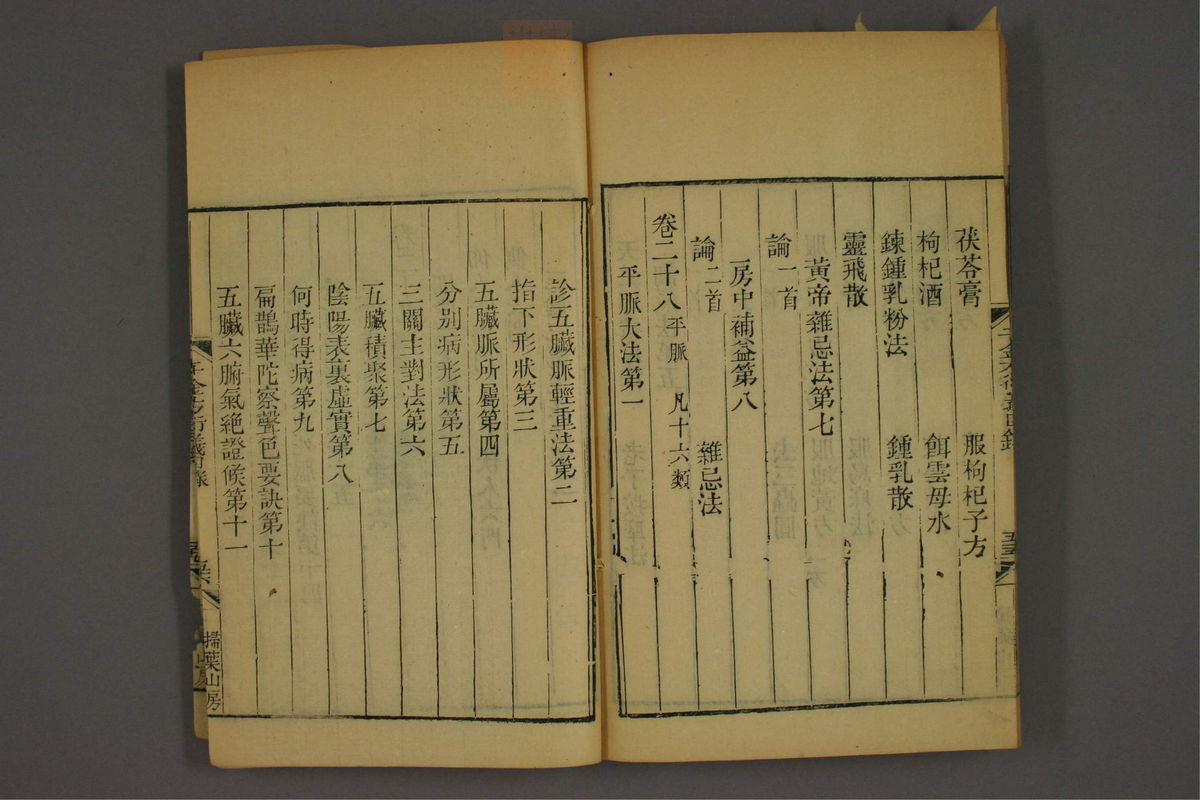 茯苓膏 服枸杞子方
枸杞酒 餌雲母水
鍊鍾乳粉法 鍾乳散
靈飛散
黃帝雜忌法第七
論一首
房中補益第八
論二首 雜忌法
卷二十八 平脈 凡十六類
平脈大法第一
診五臟脈輕重法第二
指下形狀第三
五臟脈所屬第四
分别病形狀第五
三關主對法第六
五臟積聚第七
陰陽表裏虛實第八
何時得病第九
扁鵲華陀察聲色要訣第十
五臟六腑氣絕證候第十一
千金方衍義目錄
掃葉山房